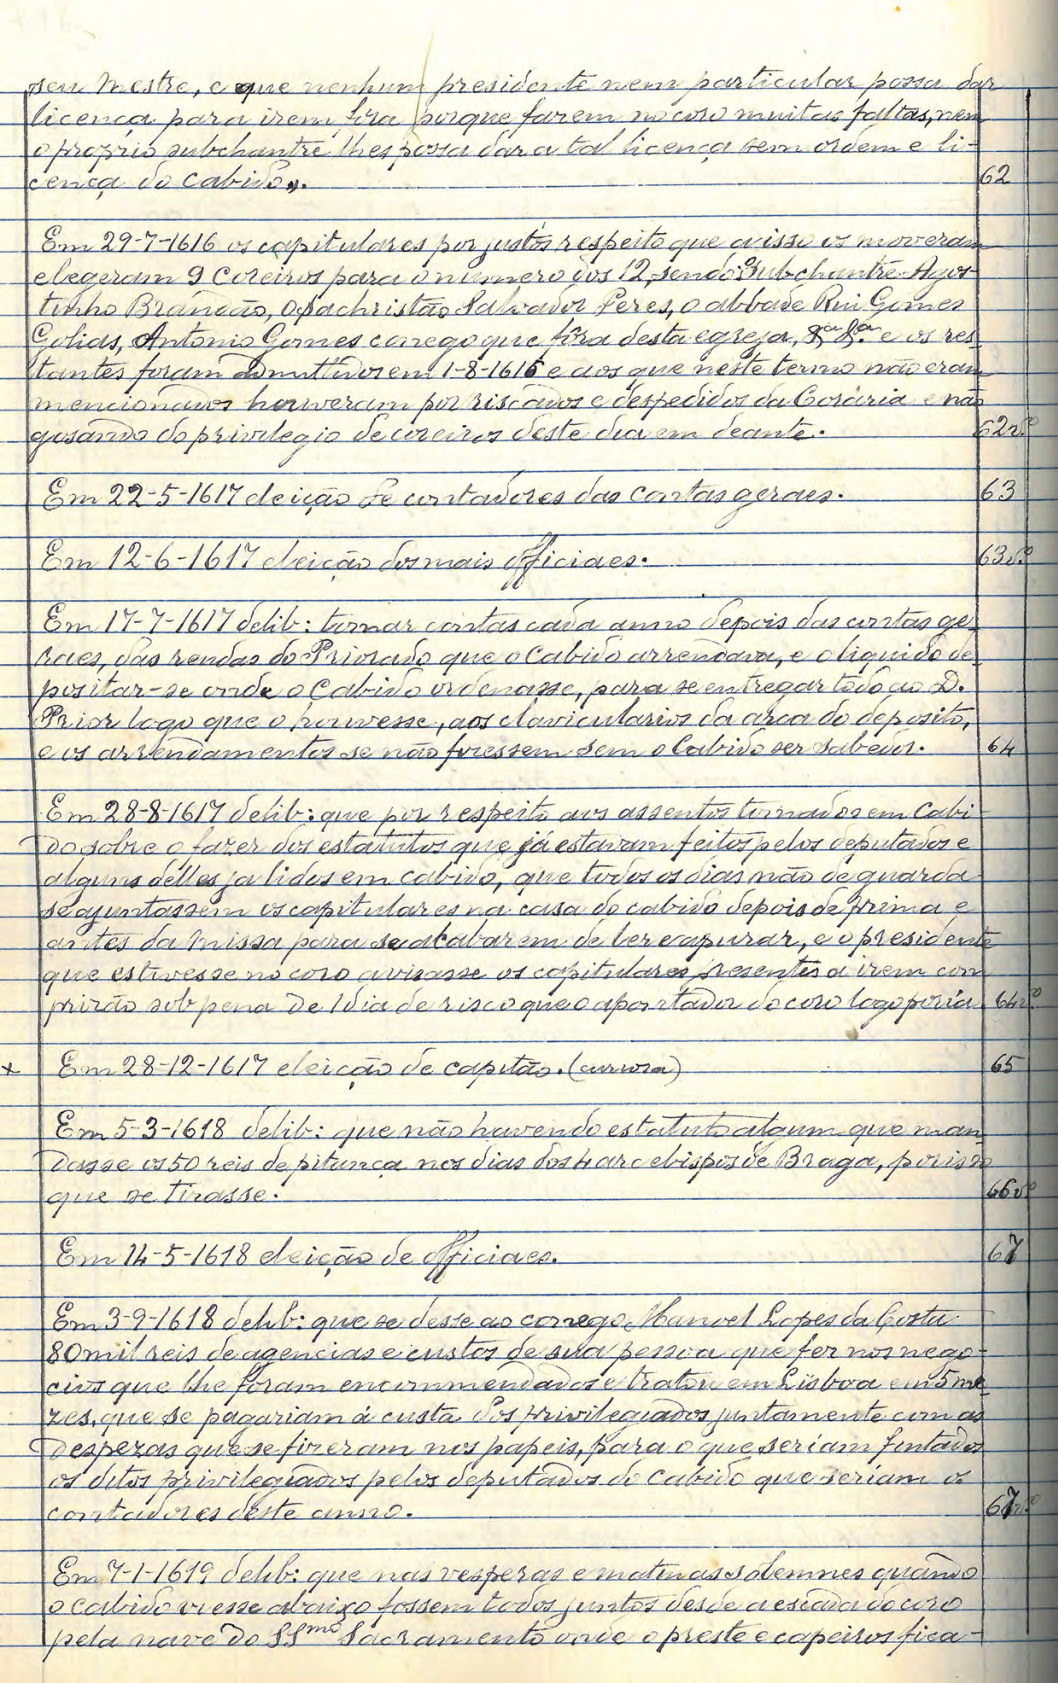 seu mestre, e que nenhum presidente nem particular possa dar
licença para irem fóra porque farem no coro muitas faltas, nem
o proprio subchantre lhes possa dar a tal licença sem ordem e li-
cença do Cabido». 62
Em 29-7-1616 os capitulares por justos respeito que a isso os moveram
elegeram 9 Coreiros para o numero dos 12, sendo: o Subchantre Agos-
tinho Brandão, o sachristão Salvador Peres, o abbade Rui Gomes
Golias, Antonio Gomes conego que fôra desta egreja, e os res-
tantes foram admittidos em 1-8-1616 e aos que neste termo não eram
mencionados houveram por riscados e despedidos da Coraria e não
gosando do privilegio de coreiros deste dia em deante. 62v.º
Em 22-5-1617 eleição de contadores das contas geraes. 63
Em 12-6-1617 eleição dos mais officiaes. 63v.º
Em 17-7-1617 delib: tomar contas cada anno depois das contas ge-
raes, das rendas do Priorado que o Cabido arrendava, e o liquido de-
positar-se onde o Cabido ordenasse, para se entregar todo ao D.
Prior logo que o houvesse, aos clavicularios da arca do deposito,
e os arrendamentos se não fizessem sem o Cabido ser sabedor. 64
Em 28-8-1617 delib: que por respeito aos assentos tomados em Cabi-
do sobre o fazer dos estatutos que já estavam feitos pelos deputados e
alguns delles ja lidos em cabido, que todos os dias não de guarda
se ajuntassem os capitulares na casa do cabido depois de prima e
antes da missa para se acabarem de ler e apurar, e o presidente
que estivesse no coro avisasse os capitulares presentes a irem com
prisão sob pena de 1 dia de risco que o apontador do coro logo poria. 64v.º
x Em 28-12-1617 eleição de capitão. (curiosa) 65
Em 5-3-1618 delib: que não havendo estatuto algum que man-
dasse os 50 reis de pitança nos dias dos 4 arcebispos de Braga, por isso
que se tirasse. 66v.º
Em 14-5-1618 eleição de officiaes. 67
Em 3-9-1618 delib: que se desse ao conego Manoel Lopes da Costa
80 mil reis de agencias e custos de sua pessoa que fez nos nego-
cios que lhe foram encommendados e tratou em Lisboa em 5 me-
zes, que se pagariam á custa dos privilegiados juntamente com as
despezas que se fizeram nos papeis, para o que seriam fintados
os ditos privilegiados pelos deputados do Cabido que seriam os
contadores deste anno. 67v.º
Em 7-1-1619 delib: que nas vesperas e matinas solemnes quando
o Cabido viesse abaixo fossem todos juntos desde a escada do coro
pela nave do SSmo Sacramento onde o preste e capeiros fica-